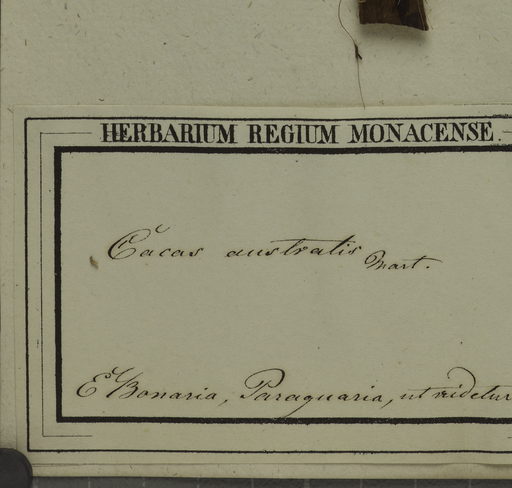 HERBARIUM REGIUM MONACENSE.
Cacas australis Mart.
E Bonaria, Paraguaria, ut videtur